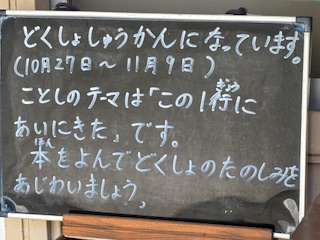 どくしょしゅうかんになっています。
(10月27日～11月9日)
ことしのテーマは「この1行に
あいにきた」です。
本をよんでどくしょのたのしみを
あじわいましょう。
ぎょう
ほん